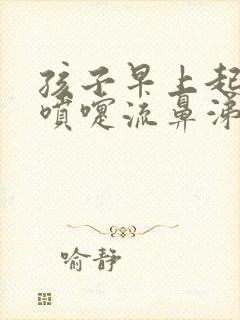 孩子早上起
喷嚏流鼻涕
喻静